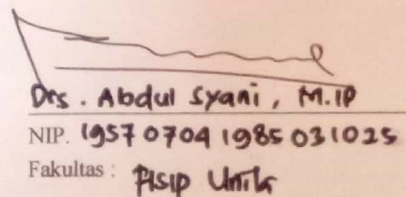 Drs. Abdul Syani, M.IP
NIP. 19570704 198503 1025
Fakultas : FISIP Unila